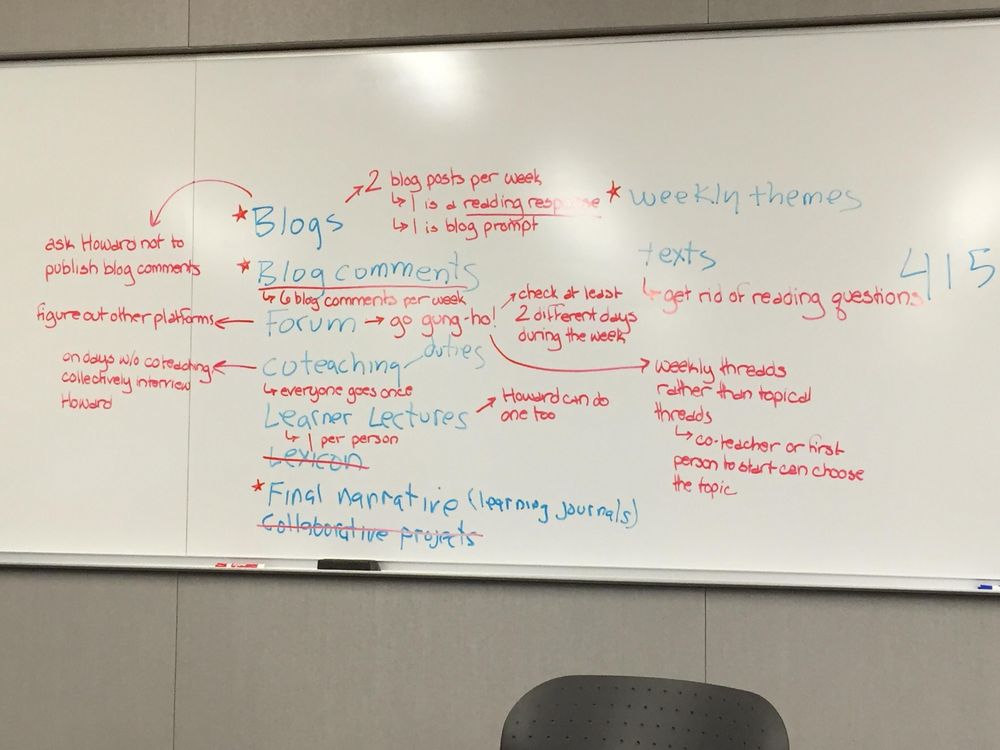 * Blogs
→ 2 blog posts per week
↳ 1 is a reading response
↳ 1 is blog prompt
ask Howard not to
publish blog comments
* Blog comments
↳ 6 blog comments per week
Forum → go gung-ho!
figure out other platforms
check at least
2 different days
during the week
weekly threads
rather than topical
threads
↳ co-teacher or first
person to start can choose
the topic
coteaching duties
↳ everyone goes once
on days w/o coteaching
collectively interview
Howard
Learner Lectures
↳ 1 per person
Howard can do
one too
Lexicon
* Final narrative (learning journals)
Collaborative projects
* weekly themes
texts
↳ get rid of reading questions
415